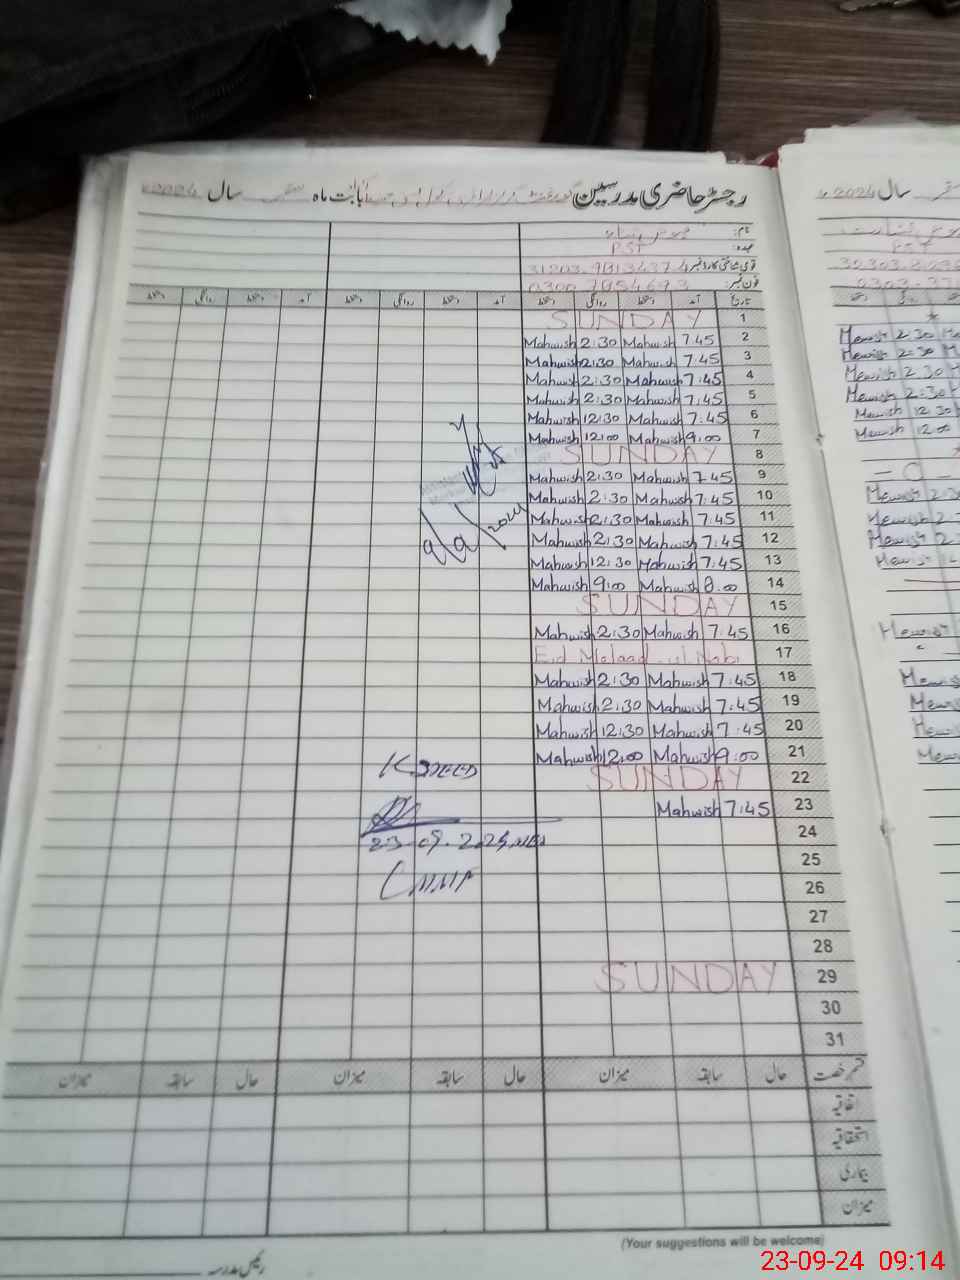 رجسٹر حاضری مدرسین بابت ماہ ستمبر سال 2024
نام:
عہدہ: PST
قومی شناختی کارڈ نمبر
فون نمبر: 0300 7854693
تاریخ آمد دستخط روانگی دستخط آمد دستخط روانگی دستخط آمد دستخط روانگی دستخط
1 SUNDAY
2 7.45 Mahwish 2:30 Mahwish
3 7:45 Mahwish 2:30 Mahwish
4 7:45 Mahwish 2:30 Mahwish
5 7:45 Mahwish 2:30 Mahwish
6 7:45 Mahwish 12:30 Mahwish
7 9:00 Mahwish 12:00 Mahwish
8 SUNDAY
9 7:45 Mahwish 2:30 Mahwish
10 7:45 Mahwish 2:30 Mahwish
11 7:45 Mahwish 2:30 Mahwish
12 7:45 Mahwish 2:30 Mahwish
13 7:45 Mahwish 12:30 Mahwish
14 8:00 Mahwish 9:00 Mahwish
15 SUNDAY
16 7:45 Mahwish 2:30 Mahwish
17 Eid Malaad ul Nabi
18 7:45 Mahwish 2:30 Mahwish
19 7:45 Mahwish 2:30 Mahwish
20 7:45 Mahwish 12:30 Mahwish
21 9:00 Mahwish 12:00 Mahwish
22 SUNDAY
23 7:45 Mahwish
24
25
26
27
28
29 SUNDAY
30
31
9/9/2024
23-09-2024
قسم رخصت حال سابقہ میزان حال سابقہ میزان حال سابقہ میزان
اتفاقیہ
استحقاقیہ
بیماری
میزان
(Your suggestions will be welcome)
رئیس مدرسہ
سال 2024
PST
Mewish 2:30
Mewish 2:30
Mewish 2:30
Mewish 2:30
Mewish 12:30
Mewish 12:00
23-09-24 09:14